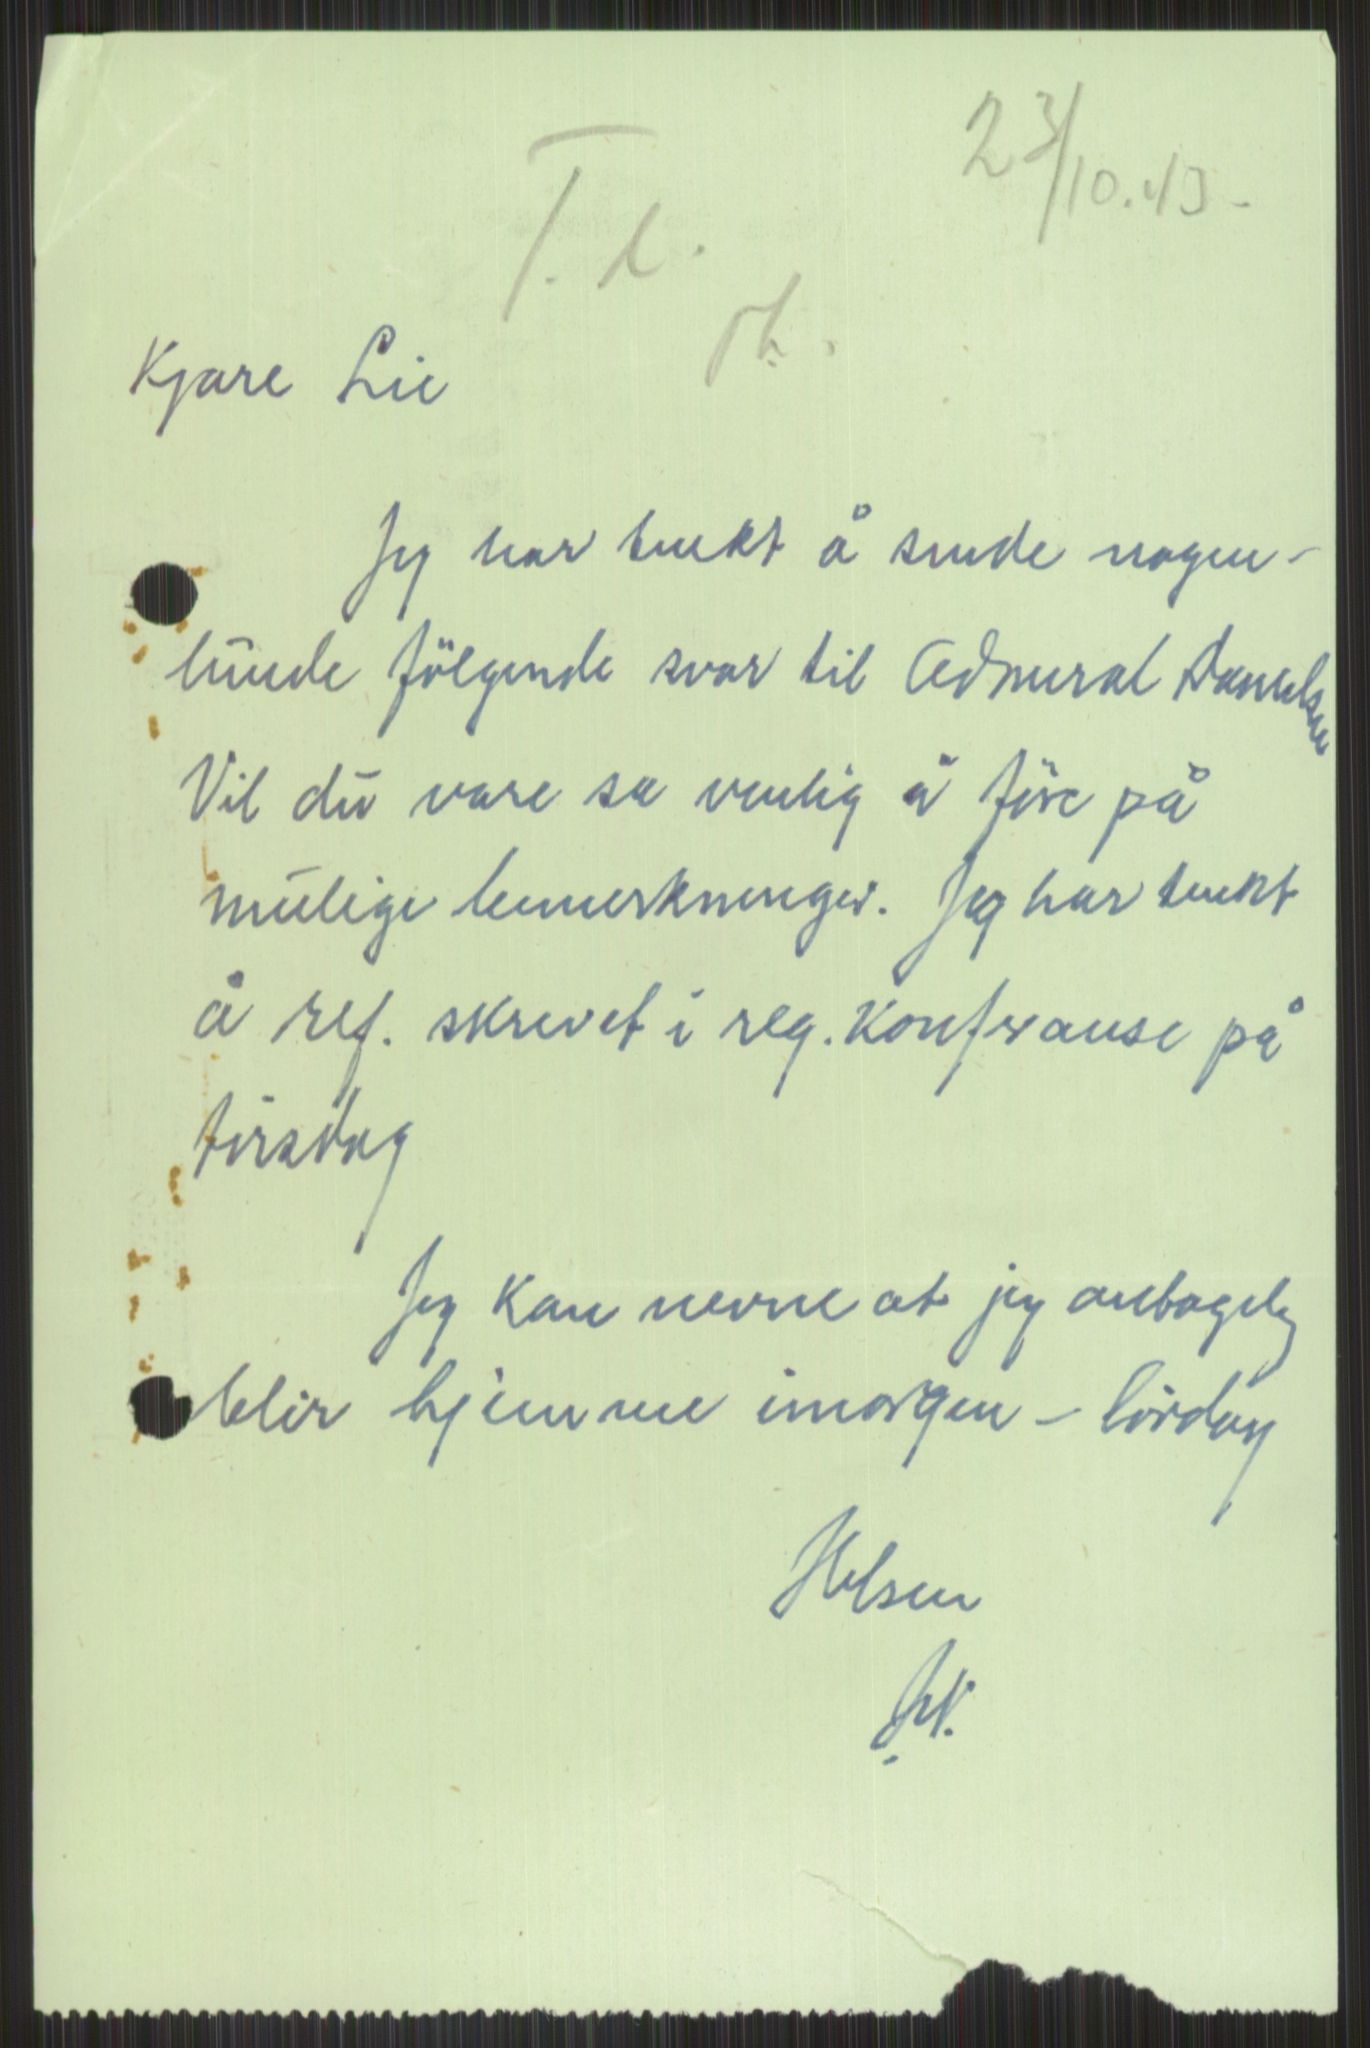 23/10.43-
T. L.
Kjære Lie
Jeg har tenkt å sende nogen-
lunde følgende svar til Admiral Danielsen
Vil du være så venlig å føre på
mulige bemerkninger. Jeg har tenkt
å ref. skrevet i reg. konferanse på
tirsdag
Jeg kan nevne at jeg antagelig
blir hjemme imorgen - lördag
Hilsen